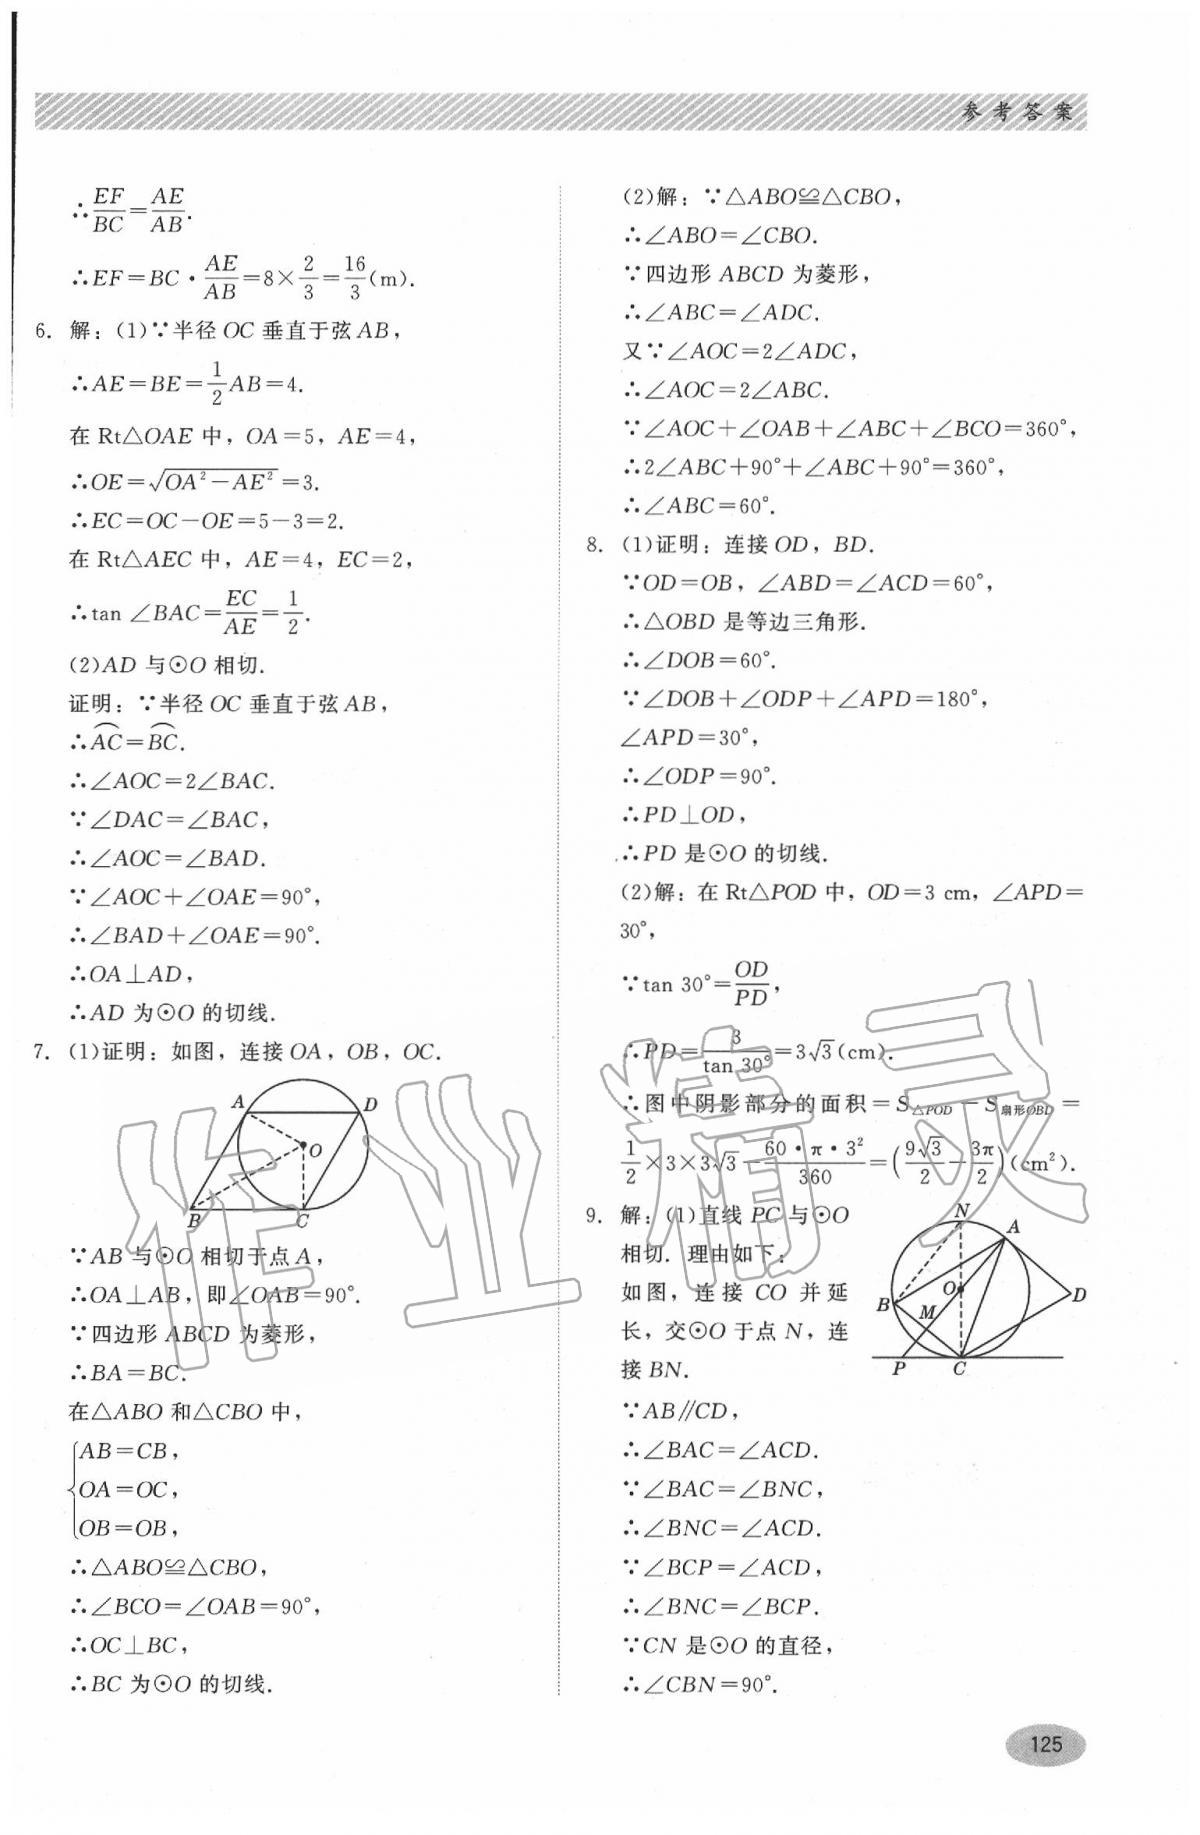 参考答案
∴EF/BC=AE/AB.
∴EF=BC·AE/AB=8×2/3=16/3(m).
6. 解：(1)∵半径OC垂直于弦AB，
∴AE=BE=1/2AB=4.
在Rt△OAE中，OA=5，AE=4，
∴OE=√(OA²-AE²)=3.
∴EC=OC-OE=5-3=2.
在Rt△AEC中，AE=4，EC=2，
∴tan ∠BAC=EC/AE=1/2.
(2)AD与⊙O相切.
证明：∵半径OC垂直于弦AB，
∴⌒AC=⌒BC.
∴∠AOC=2∠BAC.
∵∠DAC=∠BAC，
∴∠AOC=∠BAD.
∵∠AOC+∠OAE=90°，
∴∠BAD+∠OAE=90°.
∴OA⊥AD，
∴AD为⊙O的切线.
7. (1)证明：如图，连接OA，OB，OC.
A D
O
B C
∵AB与⊙O相切于点A，
∴OA⊥AB，即∠OAB=90°.
∵四边形ABCD为菱形，
∴BA=BC.
在△ABO和△CBO中，
{AB=CB，
OA=OC，
OB=OB，
∴△ABO≌△CBO，
∴∠BCO=∠OAB=90°，
∴OC⊥BC，
∴BC为⊙O的切线.
(2)解：∵△ABO≌△CBO，
∴∠ABO=∠CBO.
∵四边形ABCD为菱形，
∴∠ABC=∠ADC.
又∵∠AOC=2∠ADC，
∴∠AOC=2∠ABC.
∵∠AOC+∠OAB+∠ABC+∠BCO=360°，
∴2∠ABC+90°+∠ABC+90°=360°，
∴∠ABC=60°.
8. (1)证明：连接OD，BD.
∵OD=OB，∠ABD=∠ACD=60°，
∴△OBD是等边三角形.
∴∠DOB=60°.
∵∠DOB+∠ODP+∠APD=180°，
∠APD=30°，
∴∠ODP=90°.
∴PD⊥OD，
∴PD是⊙O的切线.
(2)解：在Rt△POD中，OD=3 cm，∠APD=
30°，
∵tan 30°=OD/PD，
∴PD=3/tan 30°=3√3(cm).
∴图中阴影部分的面积=S△POD-S扇形OBD=
1/2×3×3√3-60·π·3²/360=(9√3/2-3π/2)(cm²).
9. 解：(1)直线PC与⊙O
相切. 理由如下：
如图，连接CO并延
长，交⊙O于点N，连
接BN.
N
A
O D
B M
P C
∵AB∥CD，
∴∠BAC=∠ACD.
∵∠BAC=∠BNC，
∴∠BNC=∠ACD.
∵∠BCP=∠ACD，
∴∠BNC=∠BCP.
∵CN是⊙O的直径，
∴∠CBN=90°.
作业精灵
125